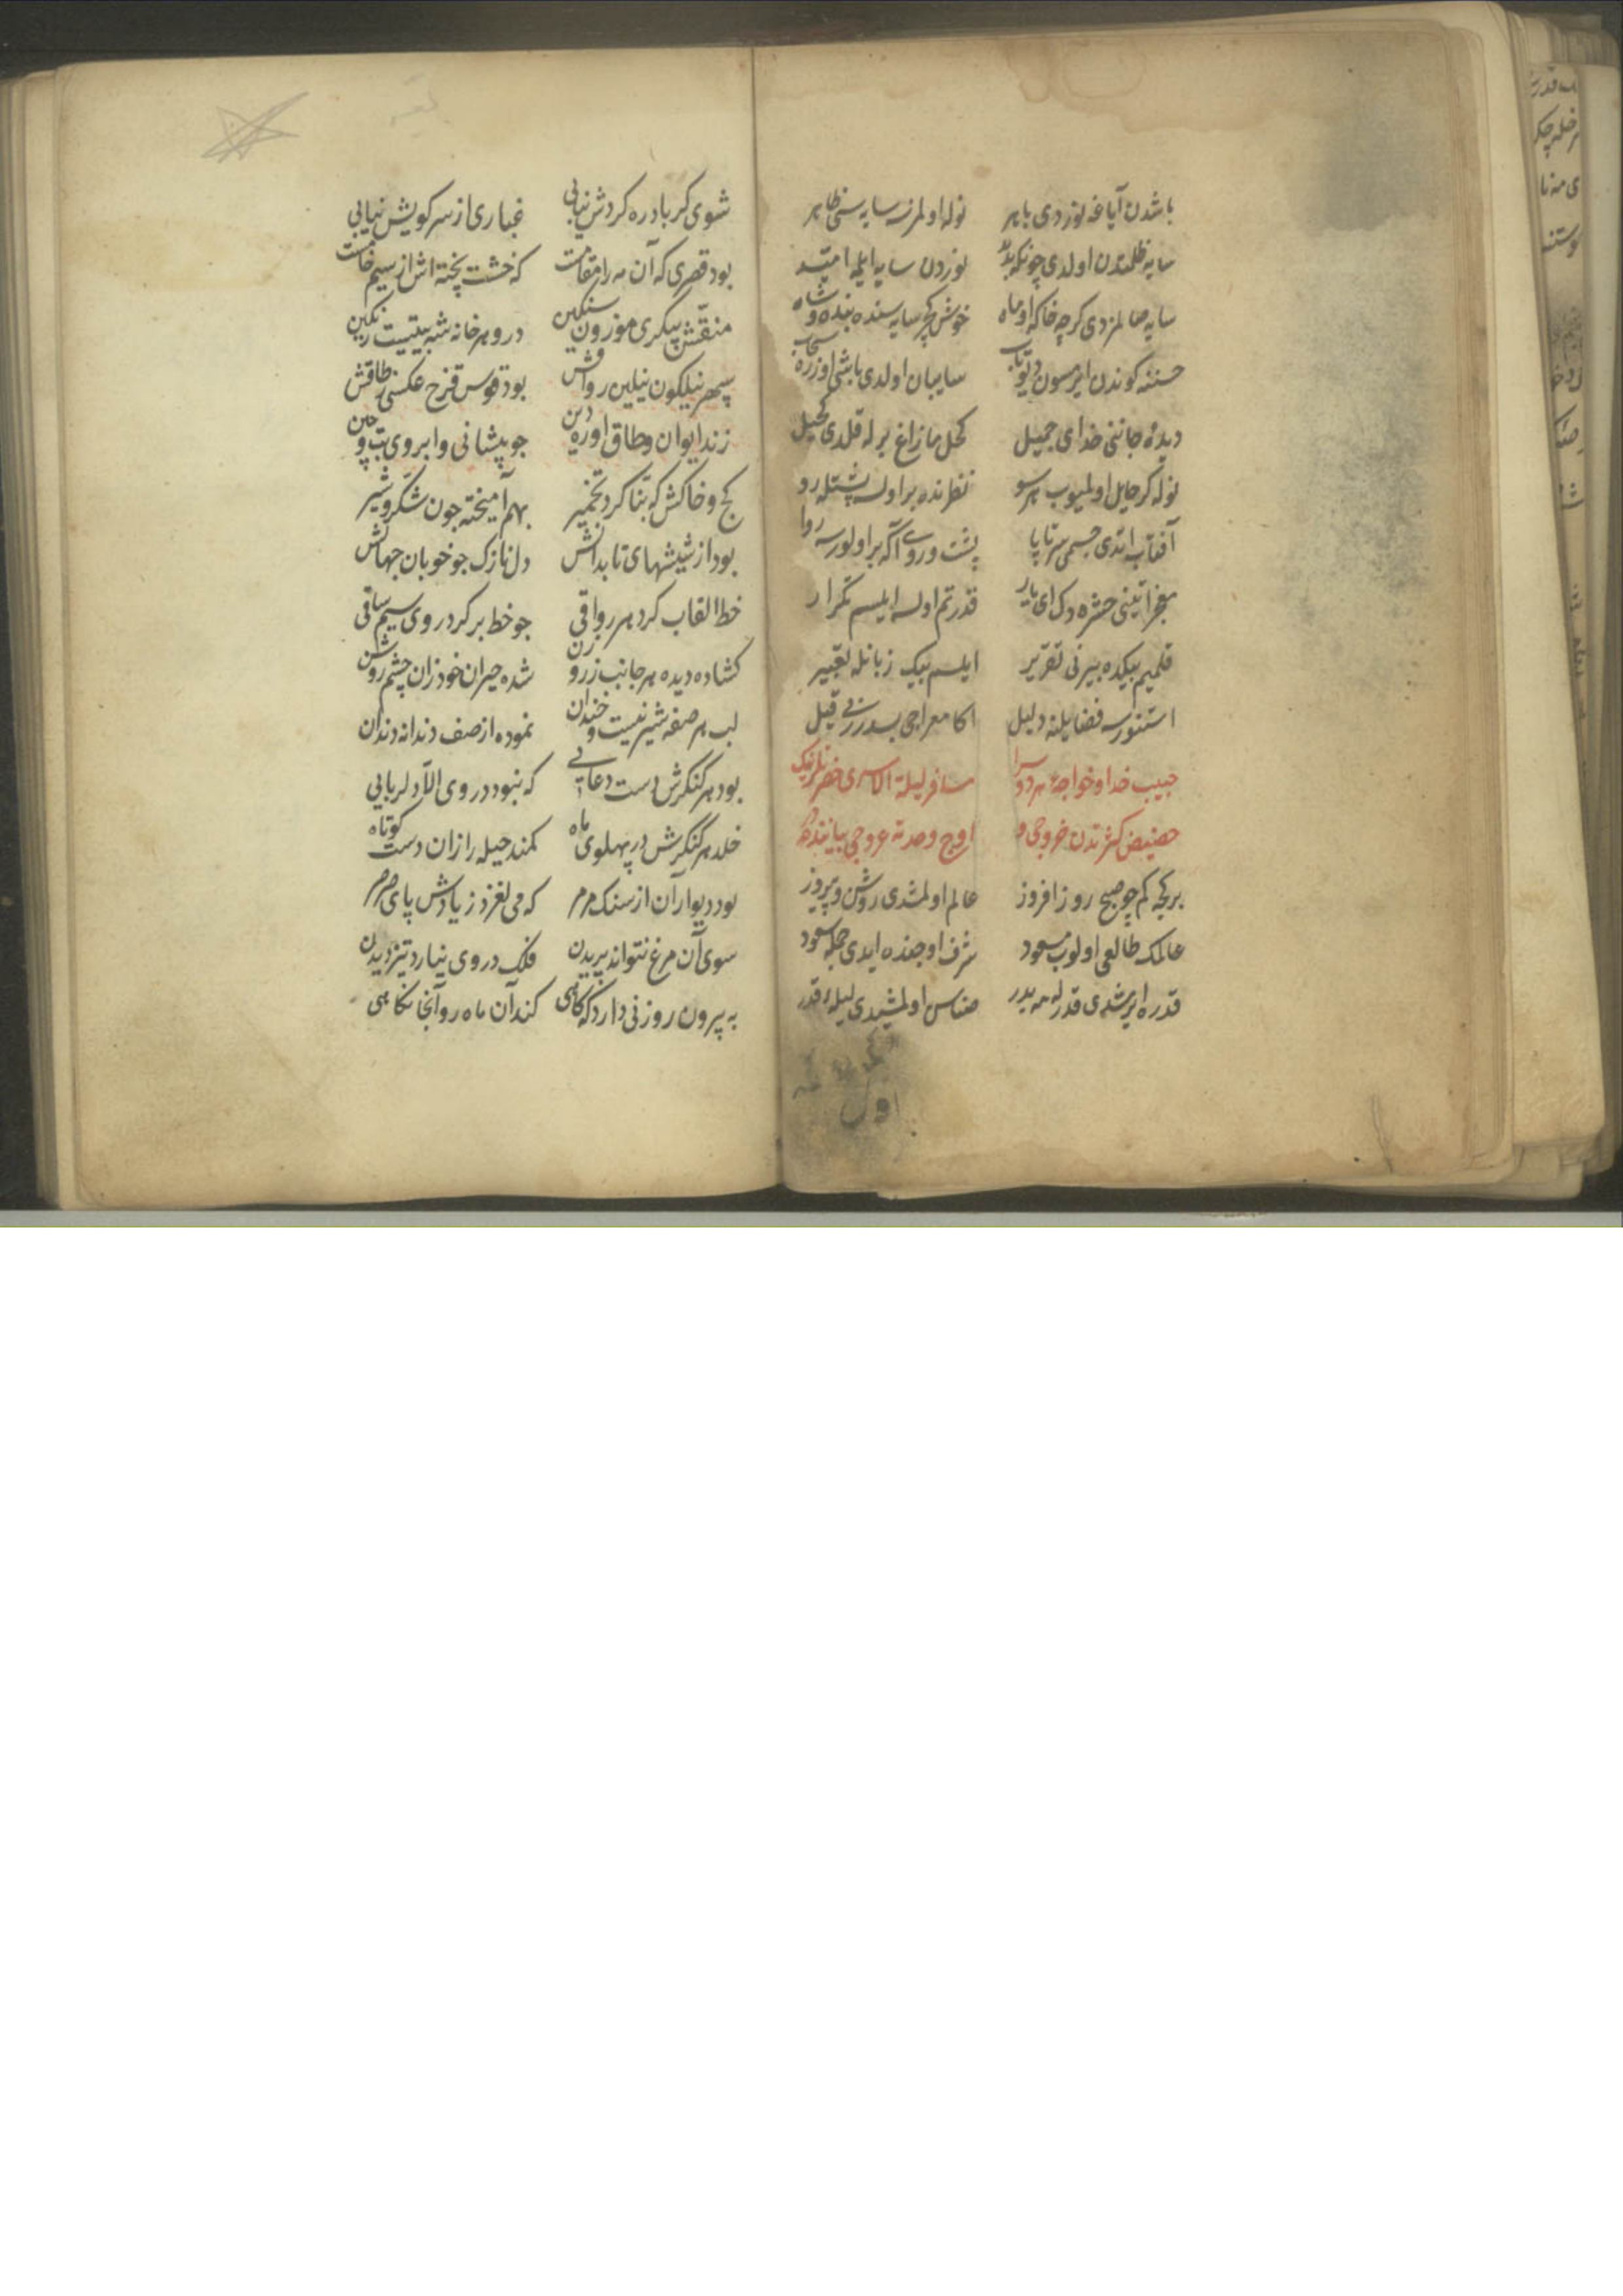 باشدن آیاغه نوردی باهر نوله اولمزسه سایه سی ظاهر
سایه ظلمتدن اولدی چونکه بدید نوردن سایه ایلمه امید
سایه صالمزدی کرچه خاکه او ماه خوش کچر سایه سنده بنده و شاه
حسننه کوندن ایرمسون دیو تاب سایبان اولدی باشی اوزره سحاب
دیدهٔ جاننی خدای جمیل کحل مازاغ برله قلدی کحیل
نوله کر حایل اولمیوب هر سو نظرنده بر اولسه پشتله رو
آفتاب ایتدی جسمی سرتاپا پشت و روی اکه بر اولورسه روا
معجزاتینی حشره دک ای یار قدرتم اولسه ایلسم تکرار
قلمیم بیکده بیرنی تقریر ایلسم بیک زبانله تعبیر
استنورسه فضایلنه دلیل اکا معراجی بسدرر بی قیل
حبیب خدا و خواجهٔ هر دو سرا مسافر لیلة الاسری حضرتلرینک
حضیض کثرتدن خروجی و اوج وحدته عروجی بیاننده در
بر کیجه کم چو صبح روز افروز عالم اولمشدی روشن و پیروز
عالمک طالعی اولوب مسعود شرف اوجنده ایدی جمله سعود
قدره ایرشدی قدرله مه بدر صفناس اولمشیدی لیلهٔ قدر
اول
شوی کر باد ره کردش نیابی غباری از سر کویش نیابی
بود قصری که آن مه را مقامست که خشت پخته اش از سیم خامست
منقش پیکری موزون سنکین درو هر خانه شه بیتیست رنکین
سپهر نیلکون نیلین رواقش بود قوس قزح عکسی ز طاقش
زند ایوان و طاق او ره دین چو پیشانی و ابروی بت چین
کچ و خاکش که بنا کرد تخمیر بهم آمیخته چون شکر و شیر
بود از شیشهای تابدانش دل نازک چو خوبان جهانش
خط القاب کرد هر رواقی چو خط بر کرد روی سیم ساقی
کشاده دیده هر جانب ز روزن شده حیران خود زان چشم روشن
لب هر صفه شیرینست و خندان نموده از صف دندانه دندان
بود هر کنکرش دست دعایی که نبود در وی الا دلربایی
خلد هر کنکرش در پهلوی ماه کمند حیله را زان دست کوتاه
بود دیوار آن از سنک مرمر که می لغزد ز یادش پای صرصر
سوی آن مرغ نتواند پریدن فلک در وی نیارد تیز دیدن
به بیرون روزنی دارد که کاهی کند آن ماه رو آنجا نکاهی